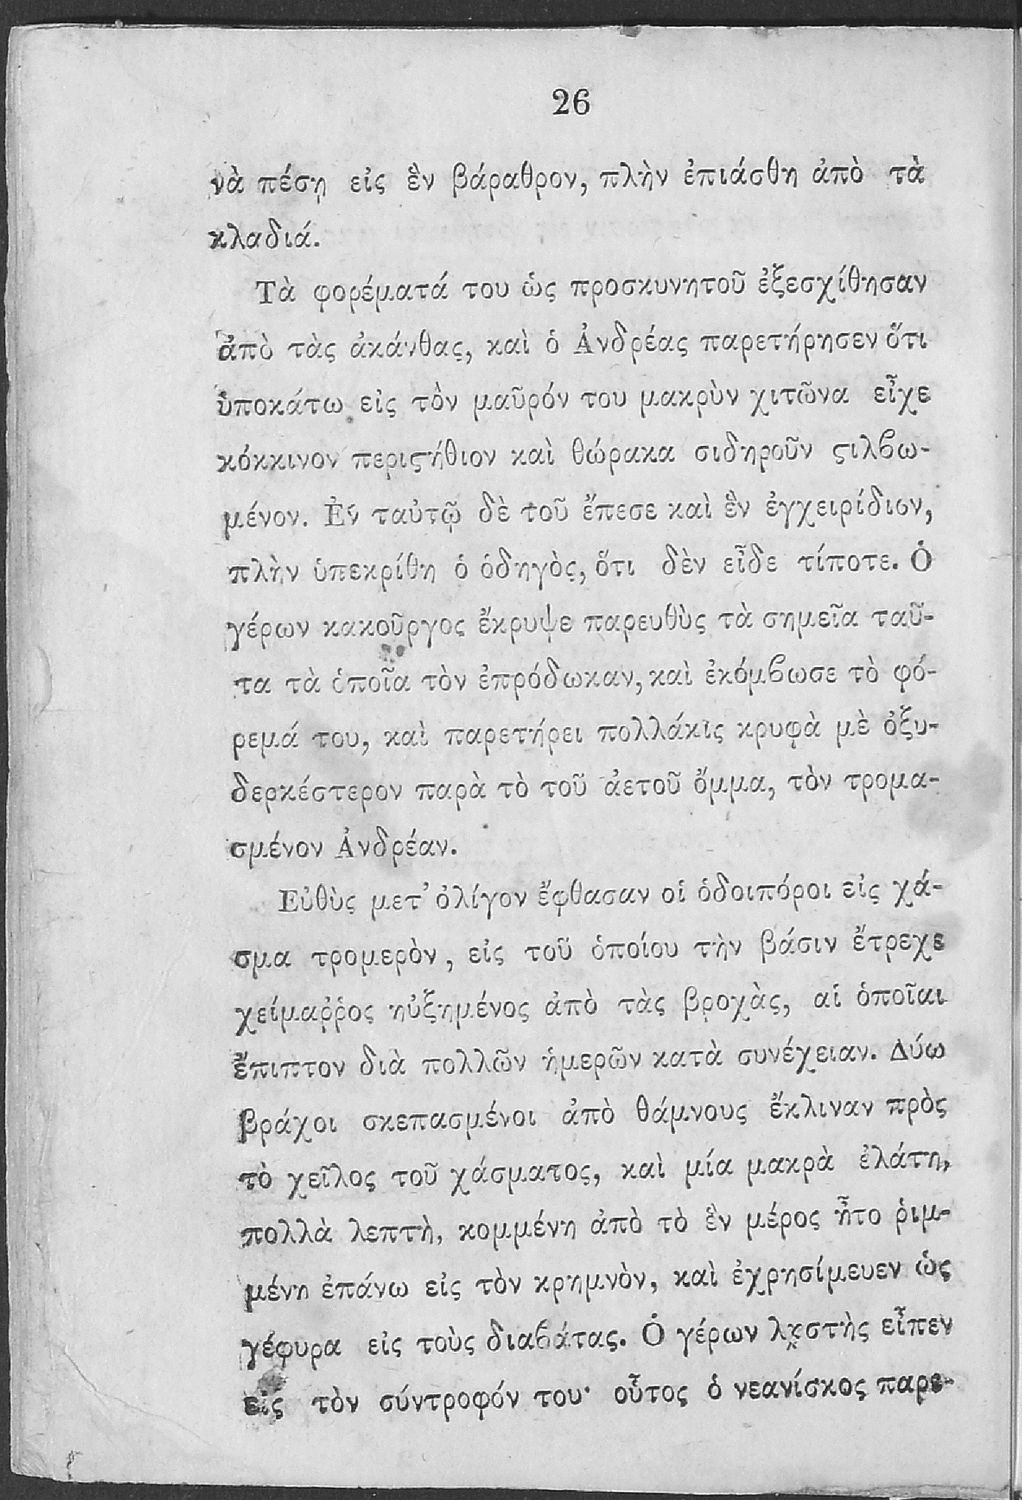 26
νὰ πέσῃ εἰς ἓν βάραθρον, πλὴν ἐπιάσθη ἀπὸ τὰ
κλαδιά.
Τὰ φορέματά του ὡς προσκυνητοῦ ἐξεσχίθησαν
ἀπὸ τὰς ἀκάνθας, καὶ ὁ Ἀνδρέας παρετήρησεν ὅτι
ὑποκάτω εἰς τὸν μαῦρόν του μακρὺν χιτῶνα εἶχε
κόκκινον περιϛήθιον καὶ θώρακα σιδηροῦν ϛιλβω-
μένον. Ἐν ταὐτῷ δὲ τοῦ ἔπεσε καὶ ἓν ἐγχειρίδιον,
πλὴν ὑπεκρίθη ὁ ὁδηγὸς, ὅτι δὲν εἶδε τίποτε. Ὁ
γέρων κακοῦργος ἔκρυψε παρευθὺς τὰ σημεῖα ταῦ-
τα τὰ ὁποῖα τὸν ἐπρόδωκαν, καὶ ἐκόμβωσε τὸ φό-
ρεμά του, καὶ παρετήρει πολλάκις κρυφὰ μὲ ὀξυ-
δερκέστερον παρὰ τὸ τοῦ ἀετοῦ ὄμμα, τὸν τρομα-
σμένον Ἀνδρέαν.
Εὐθὺς μετ’ ὀλίγον ἔφθασαν οἱ ὁδοιπόροι εἰς χά-
σμα τρομερὸν, εἰς τοῦ ὁποίου τὴν βάσιν ἔτρεχε
χείμαῤῥος ηὐξημένος ἀπὸ τὰς βροχὰς, αἱ ὁποῖαι
ἔπιπτον διὰ πολλῶν ἡμερῶν κατὰ συνέχειαν. Δύω
βράχοι σκεπασμένοι ἀπὸ θάμνους ἔκλιναν πρὸς
τὸ χεῖλος τοῦ χάσματος, καὶ μία μακρὰ ἐλάτη,
πολλὰ λεπτὴ, κομμένη ἀπὸ τὸ ἓν μέρος ἦτο ῥιμ-
μένη ἐπάνω εἰς τὸν κρημνὸν, καὶ ἐχρησίμευεν ὡς
γέφυρα εἰς τοὺς διαβάτας. Ὁ γέρων λῃστὴς εἶπεν
εἰς τὸν σύντροφόν του· οὗτος ὁ νεανίσκος παρε-